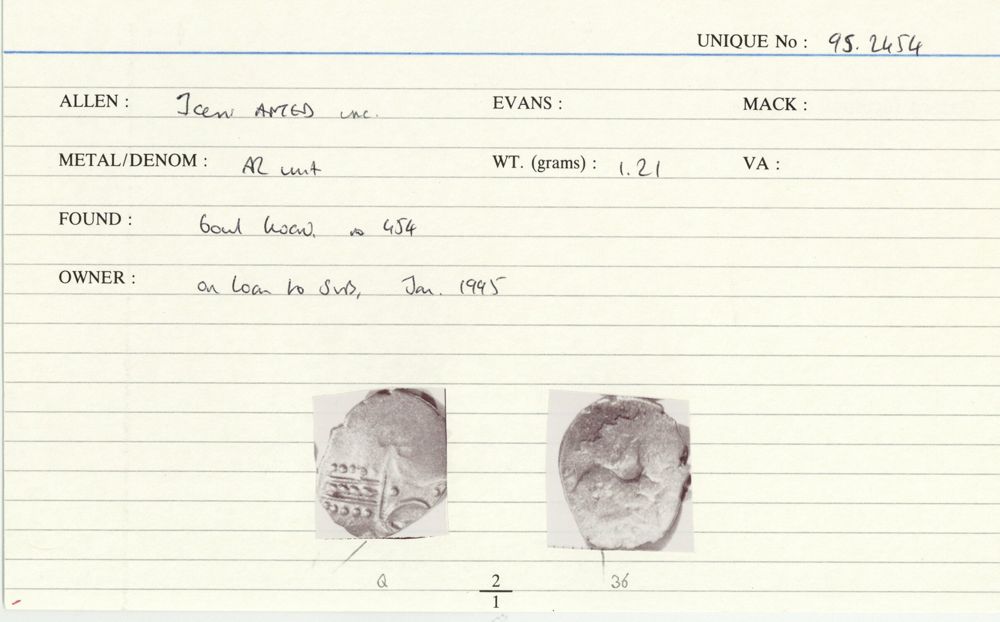 UNIQUE No : 95. 2454
ALLEN : Iceni ANTED unc. EVANS : MACK :
METAL/DENOM : AR unit WT. (grams) : 1.21 VA :
FOUND : hoard. no 454
OWNER : on loan to Jan. 1995
Q 2 36
1